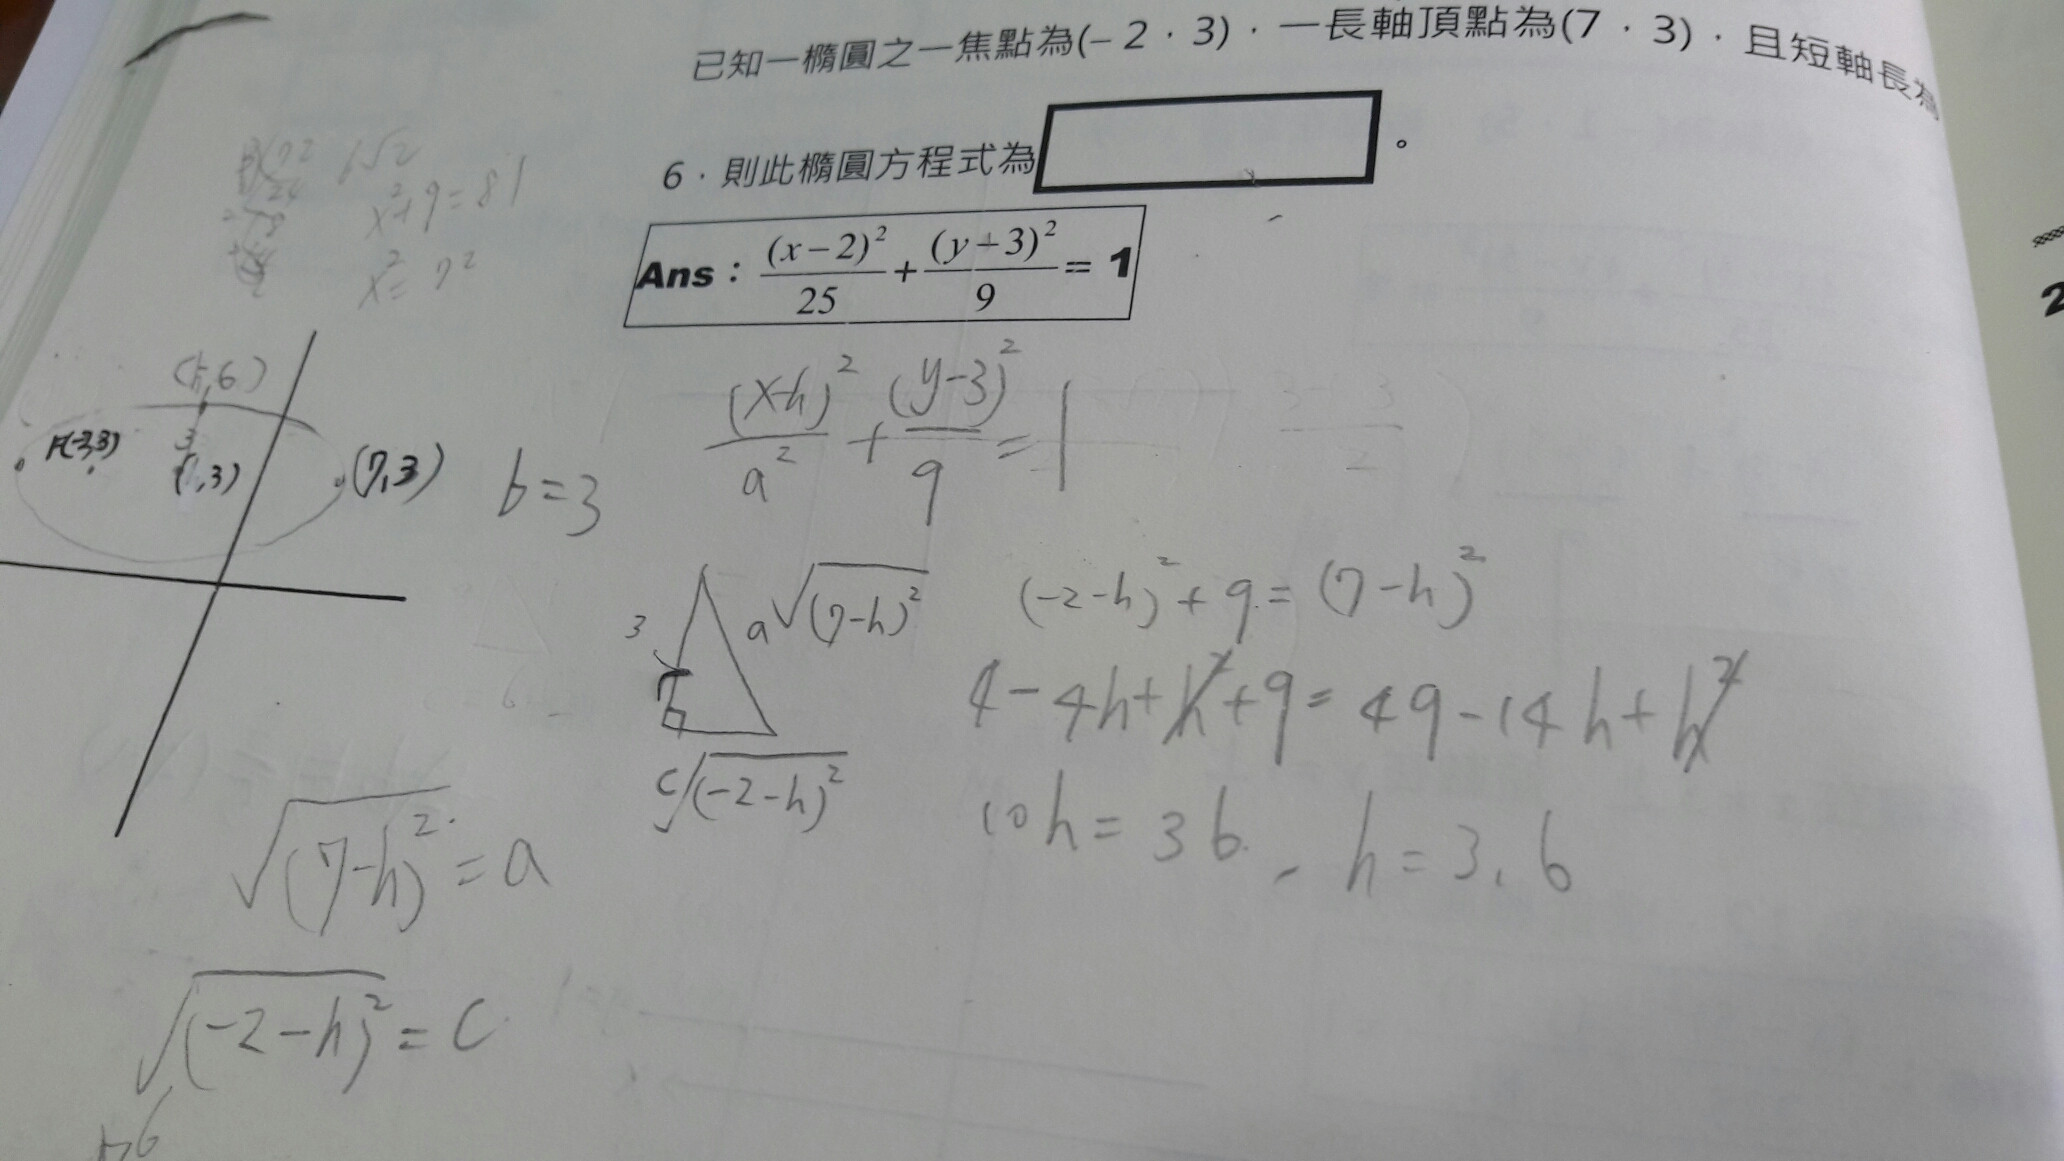 已知一橢圓之一焦點為(-2,3),一長軸頂點為(7,3),且短軸長為
6,則此橢圓方程式為 。
Ans: (x-2)²/25 + (y+3)²/9 = 1
6√2
x²+9=81
x²=72
(h,6)
3
(7,3)
b=3
(x-h)²/a² + (y-3)²/9 = 1
3
a√(7-h)²
b
c√(-2-h)²
(-2-h)²+9=(7-h)²
4-4h+h²+9=49-14h+h²
10h=36, h=3.6
√(7-h)²=a
√(-2-h)²=c
2